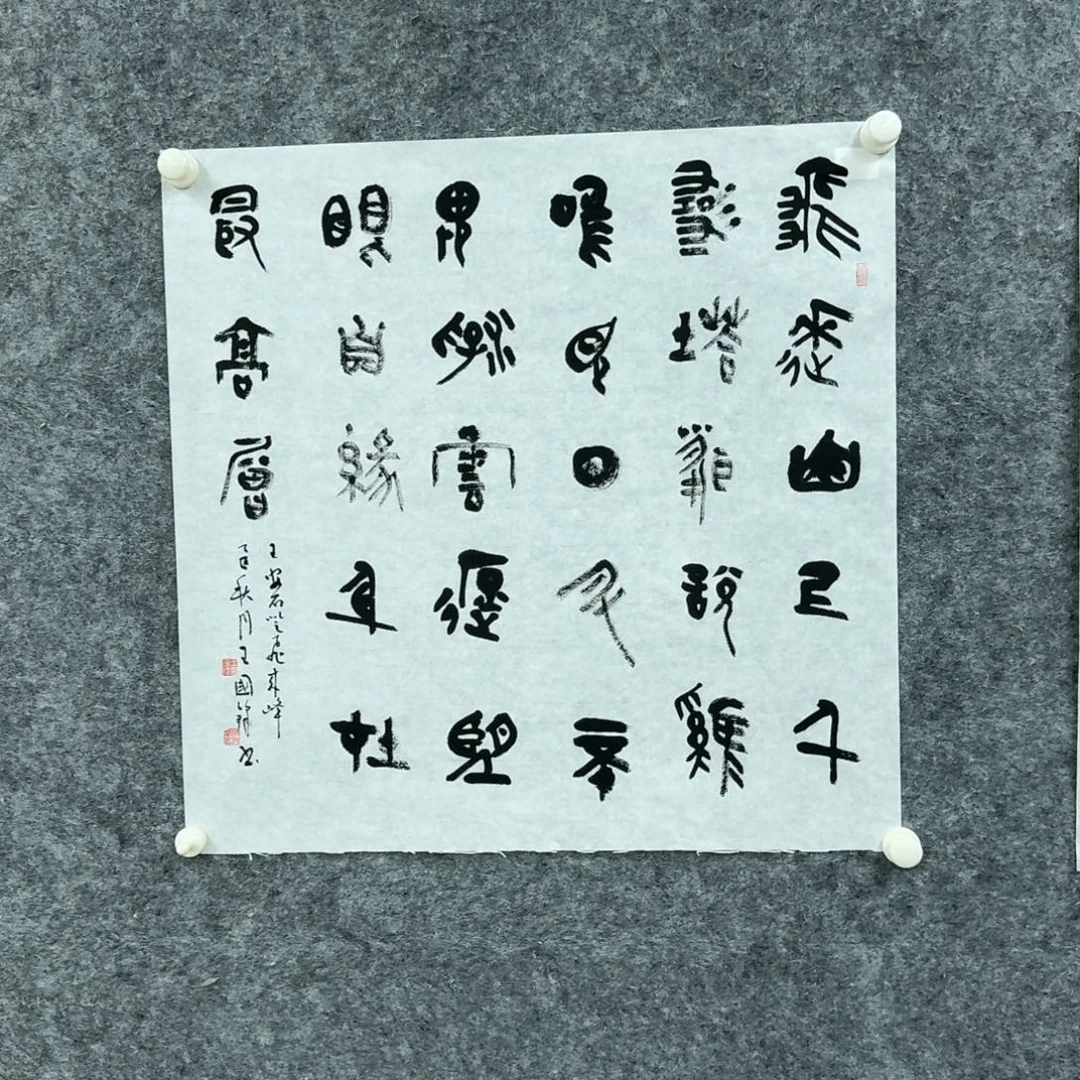 飛來山上千
尋塔聞說雞
鳴見日升不
畏浮雲遮望
眼自緣身在
最高層
王安石登飛來峰
秋月王國書